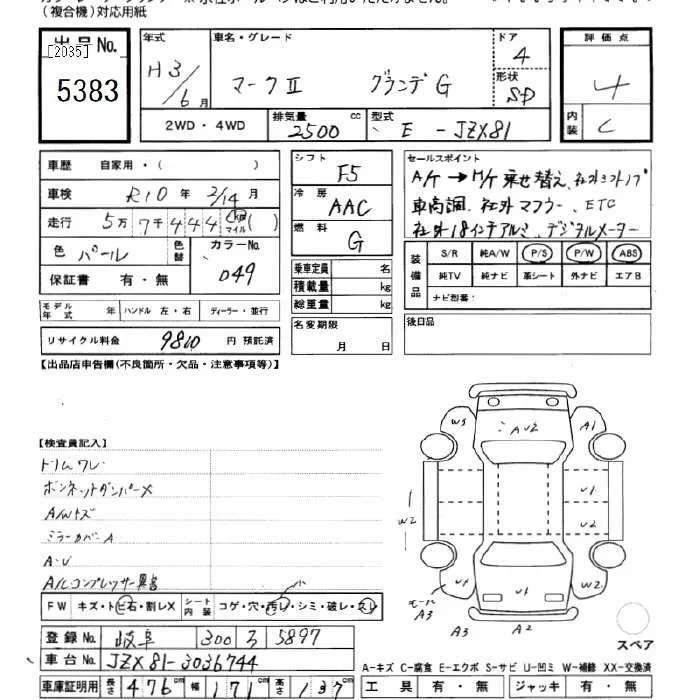 (複合機)対応用紙
出品No.
[2035]
5383
年式
H3/6月
車名・グレード
マークⅡ グランデG
ドア
4
形状
SD
評価点
4
内装
C
2WD・4WD
排気量 2500 cc
型式 E-JZX81
車歴 自家用・( )
車検 R10年 2/14月
走行 5万7千444 km マイル ( )
色 パール
色替
カラーNo. 049
保証書 有・無
シフト F5
冷房 AAC
燃料 G
セールスポイント
A/T→M/T乗せ替え、社外シフトノブ
車高調、社外マフラー、ETC
社外18インチアルミ、デジタルメーター
装備品
S/R 純A/W P/S P/W ABS
純TV 純ナビ 革シート 外ナビ エアB
ナビ型番:
乗車定員 名
積載量 kg
総重量 kg
モデル年式 年 ハンドル 左・右 ディーラー・並行
リサイクル料金 9810 円 預託済
名変期限 月 日
後日品
【出品店申告欄(不良箇所・欠品・注意事項等)】
【検査員記入】
ドリムワレ
ボンネットダンパーX
A/Wキズ
ミラーカバーA
A・U
A/Cコンプレッサー異音
W3
AU2
A1
U1
W2
U2
U1
W2
モールA3
A3
A2
スペア
FW キズ・トビ石・割レX
シート内装 コゲ・穴・汚レ・シミ・破レ・スレ
登録No. 岐阜 300 ろ 5897
車台No. JZX81-3036744
車庫証明用 長さ 476cm 幅 171cm 高さ 137cm
A-キズ C-腐食 E-エクボ S-サビ U-凹ミ W-補修 XX-交換済
工具 有・無 ジャッキ 有・無